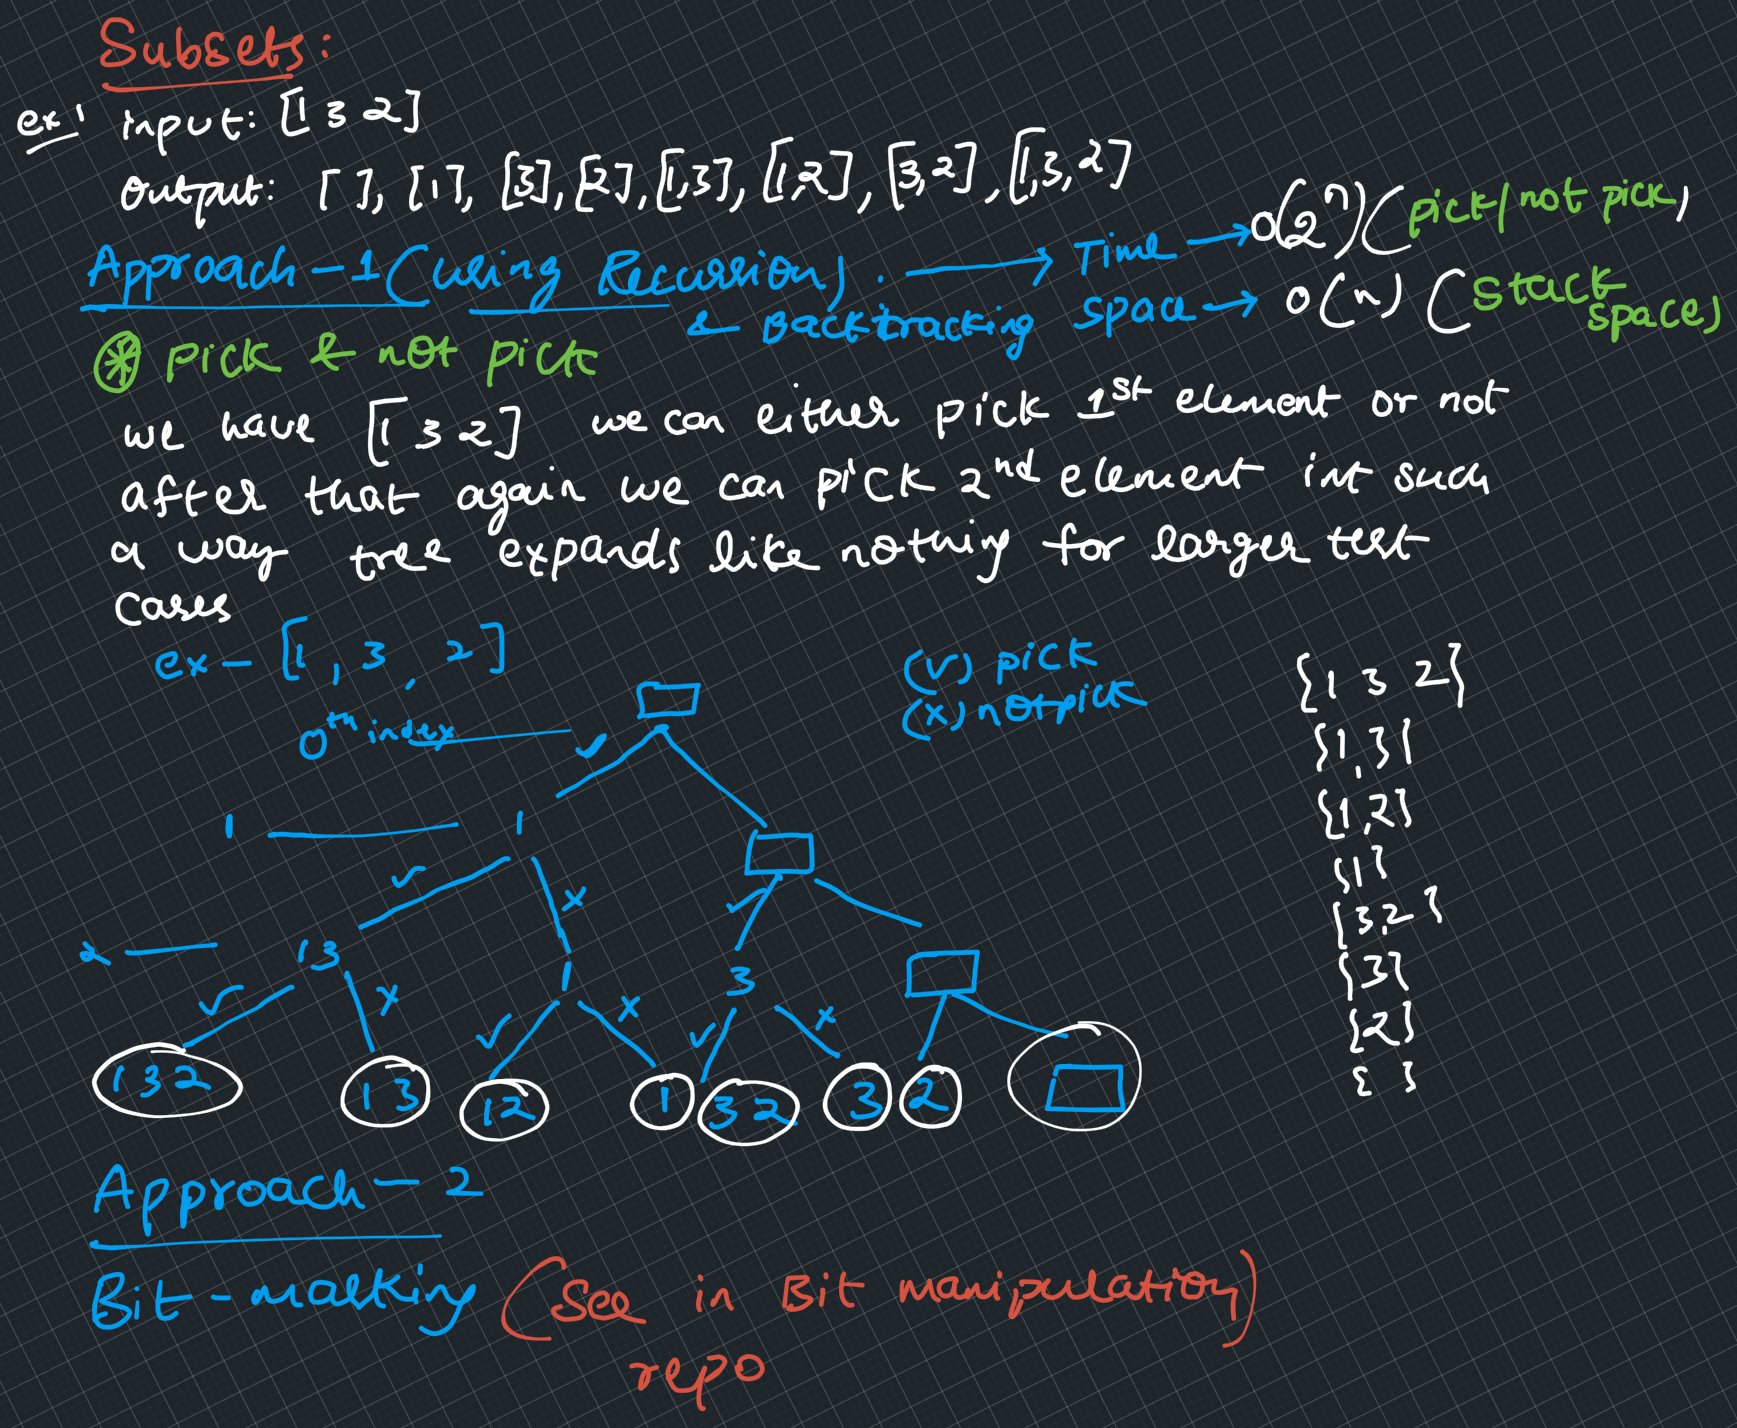 Subsets:
ex: input: [1 3 2]
output: [ ], [1], [3], [2], [1,3], [1,2], [3,2], [1,3,2]
Approach-1 (using Recussion). → Time → O(2^n) (pick/not pick)
& Backtracking space → O(n) (stack space)
* pick & not pick
we have [1 3 2] we can either pick 1st element or not
after that again we can pick 2nd element int such
a way tree expands like nothing for larger test
cases
ex - [1, 3, 2]
(✓) pick
(x) not pick
0th index
✓
1 1
✓ x ✓
2 13 1 3
✓ x ✓ x ✓ x
132 13 12 1 32 3 2
{1 3 2}
{1,3}
{1,2}
{1}
{3,2}
{3}
{2}
{ }
Approach - 2
Bit-masking (See in Bit manipulation)
repo